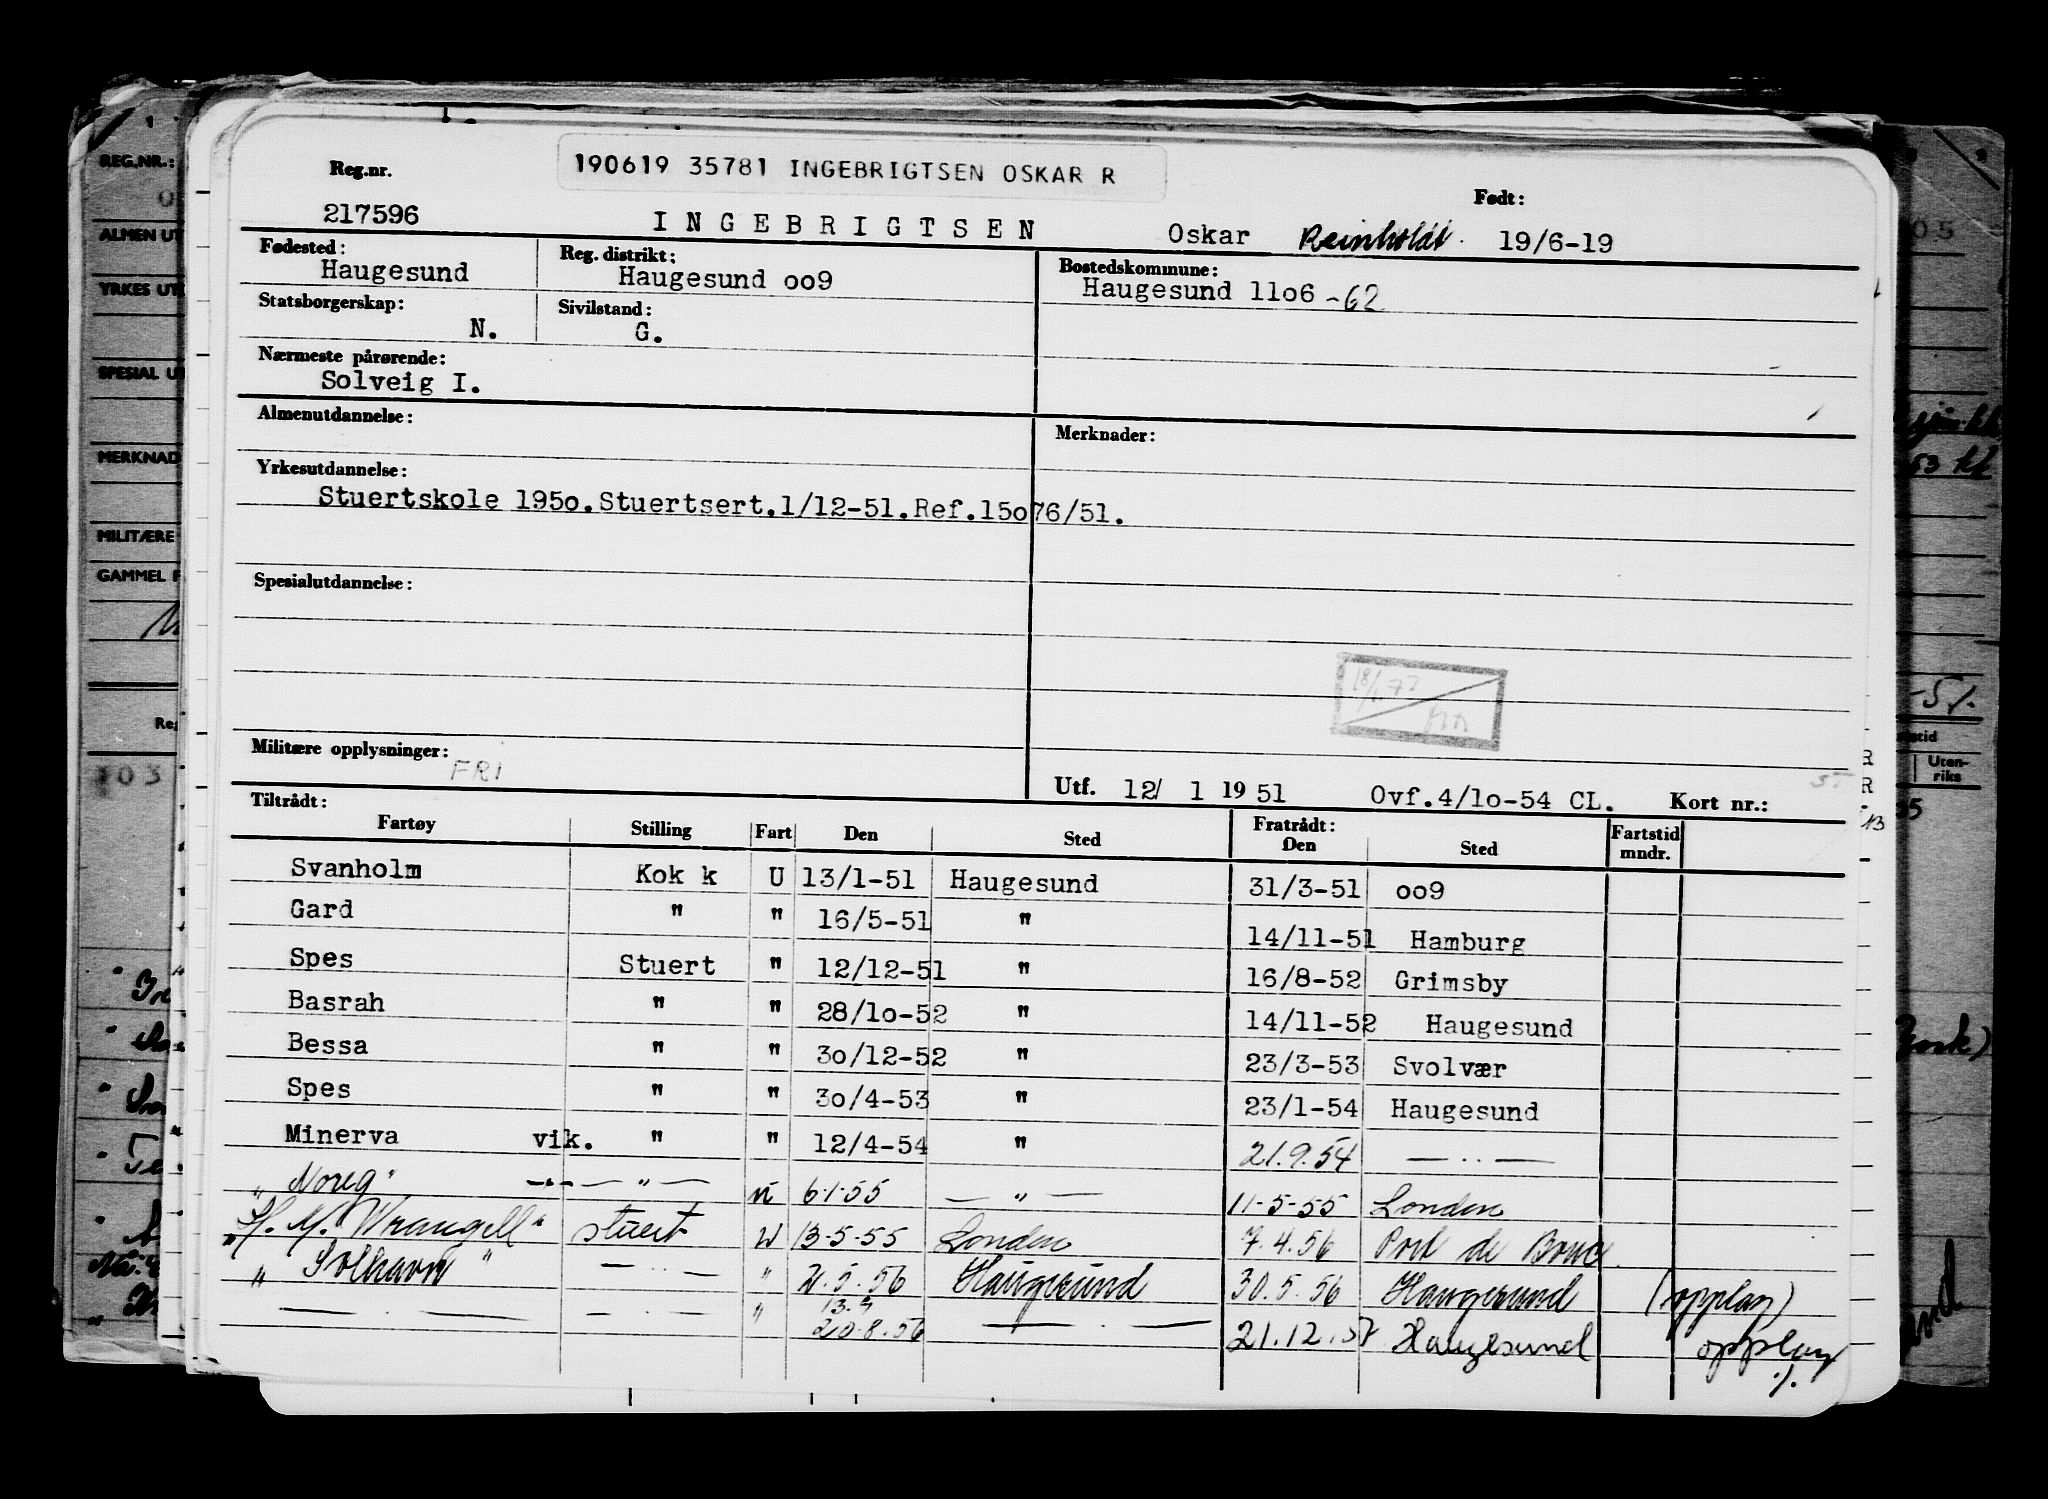 190619 35781 INGEBRIGTSEN OSKAR R
Reg.nr. Født:
217596 INGEBRIGTSEN Oskar Reinholdt. 19/6-19
Fødested: Reg. distrikt: Bostedskommune:
Haugesund Haugesund oo9 Haugesund 11o6 -62
Statsborgerskap: Sivilstand:
N. G.
Nærmeste pårørende:
Solveig I.
Almenutdannelse: Merknader:
Yrkesutdannelse:
Stuertskole 195o.Stuertsert.1/12-51.Ref.15o76/51.
Spesialutdannelse:
Militære opplysninger:
FRI
Utf. 12/ 1 19 51 Ovf.4/1o-54 CL. Kort nr.:
Tiltrådt: Fratrådt:
Fartøy Stilling Fart Den Sted Den Sted Fartstid mndr.
Svanholm Kok k U 13/1-51 Haugesund 31/3-51 oo9
Gard " " 16/5-51 " 14/11-51 Hamburg
Spes Stuert " 12/12-51 " 16/8-52 Grimsby
Basrah " " 28/1o-52 " 14/11-52 Haugesund
Bessa " " 3o/12-52 " 23/3-53 Svolvær
Spes " " 3o/4-53 " 23/1-54 Haugesund
Minerva vik. " " 12/4-54 " 21.9.54 — .. —
"Noreg" -..- — " — u 6-1-55 — " — 11-5-55 London
"H. M. Wrangell" stuert u 13-5-55 London 7.4.56 Port de Bouc
"Solhavn" — .. — " 2.5.56 Haugesund 30.5.56 Haugesund (opplag)
— .. — — .. — " 20.8.56 — . — 21.12.57 Haugesund opplag
./.
REG.NR.:
ALMEN UT
YRKES UT
SPESIAL UT
MERKNAD
MILITÆRE
GAMMEL F
Uten-
riks